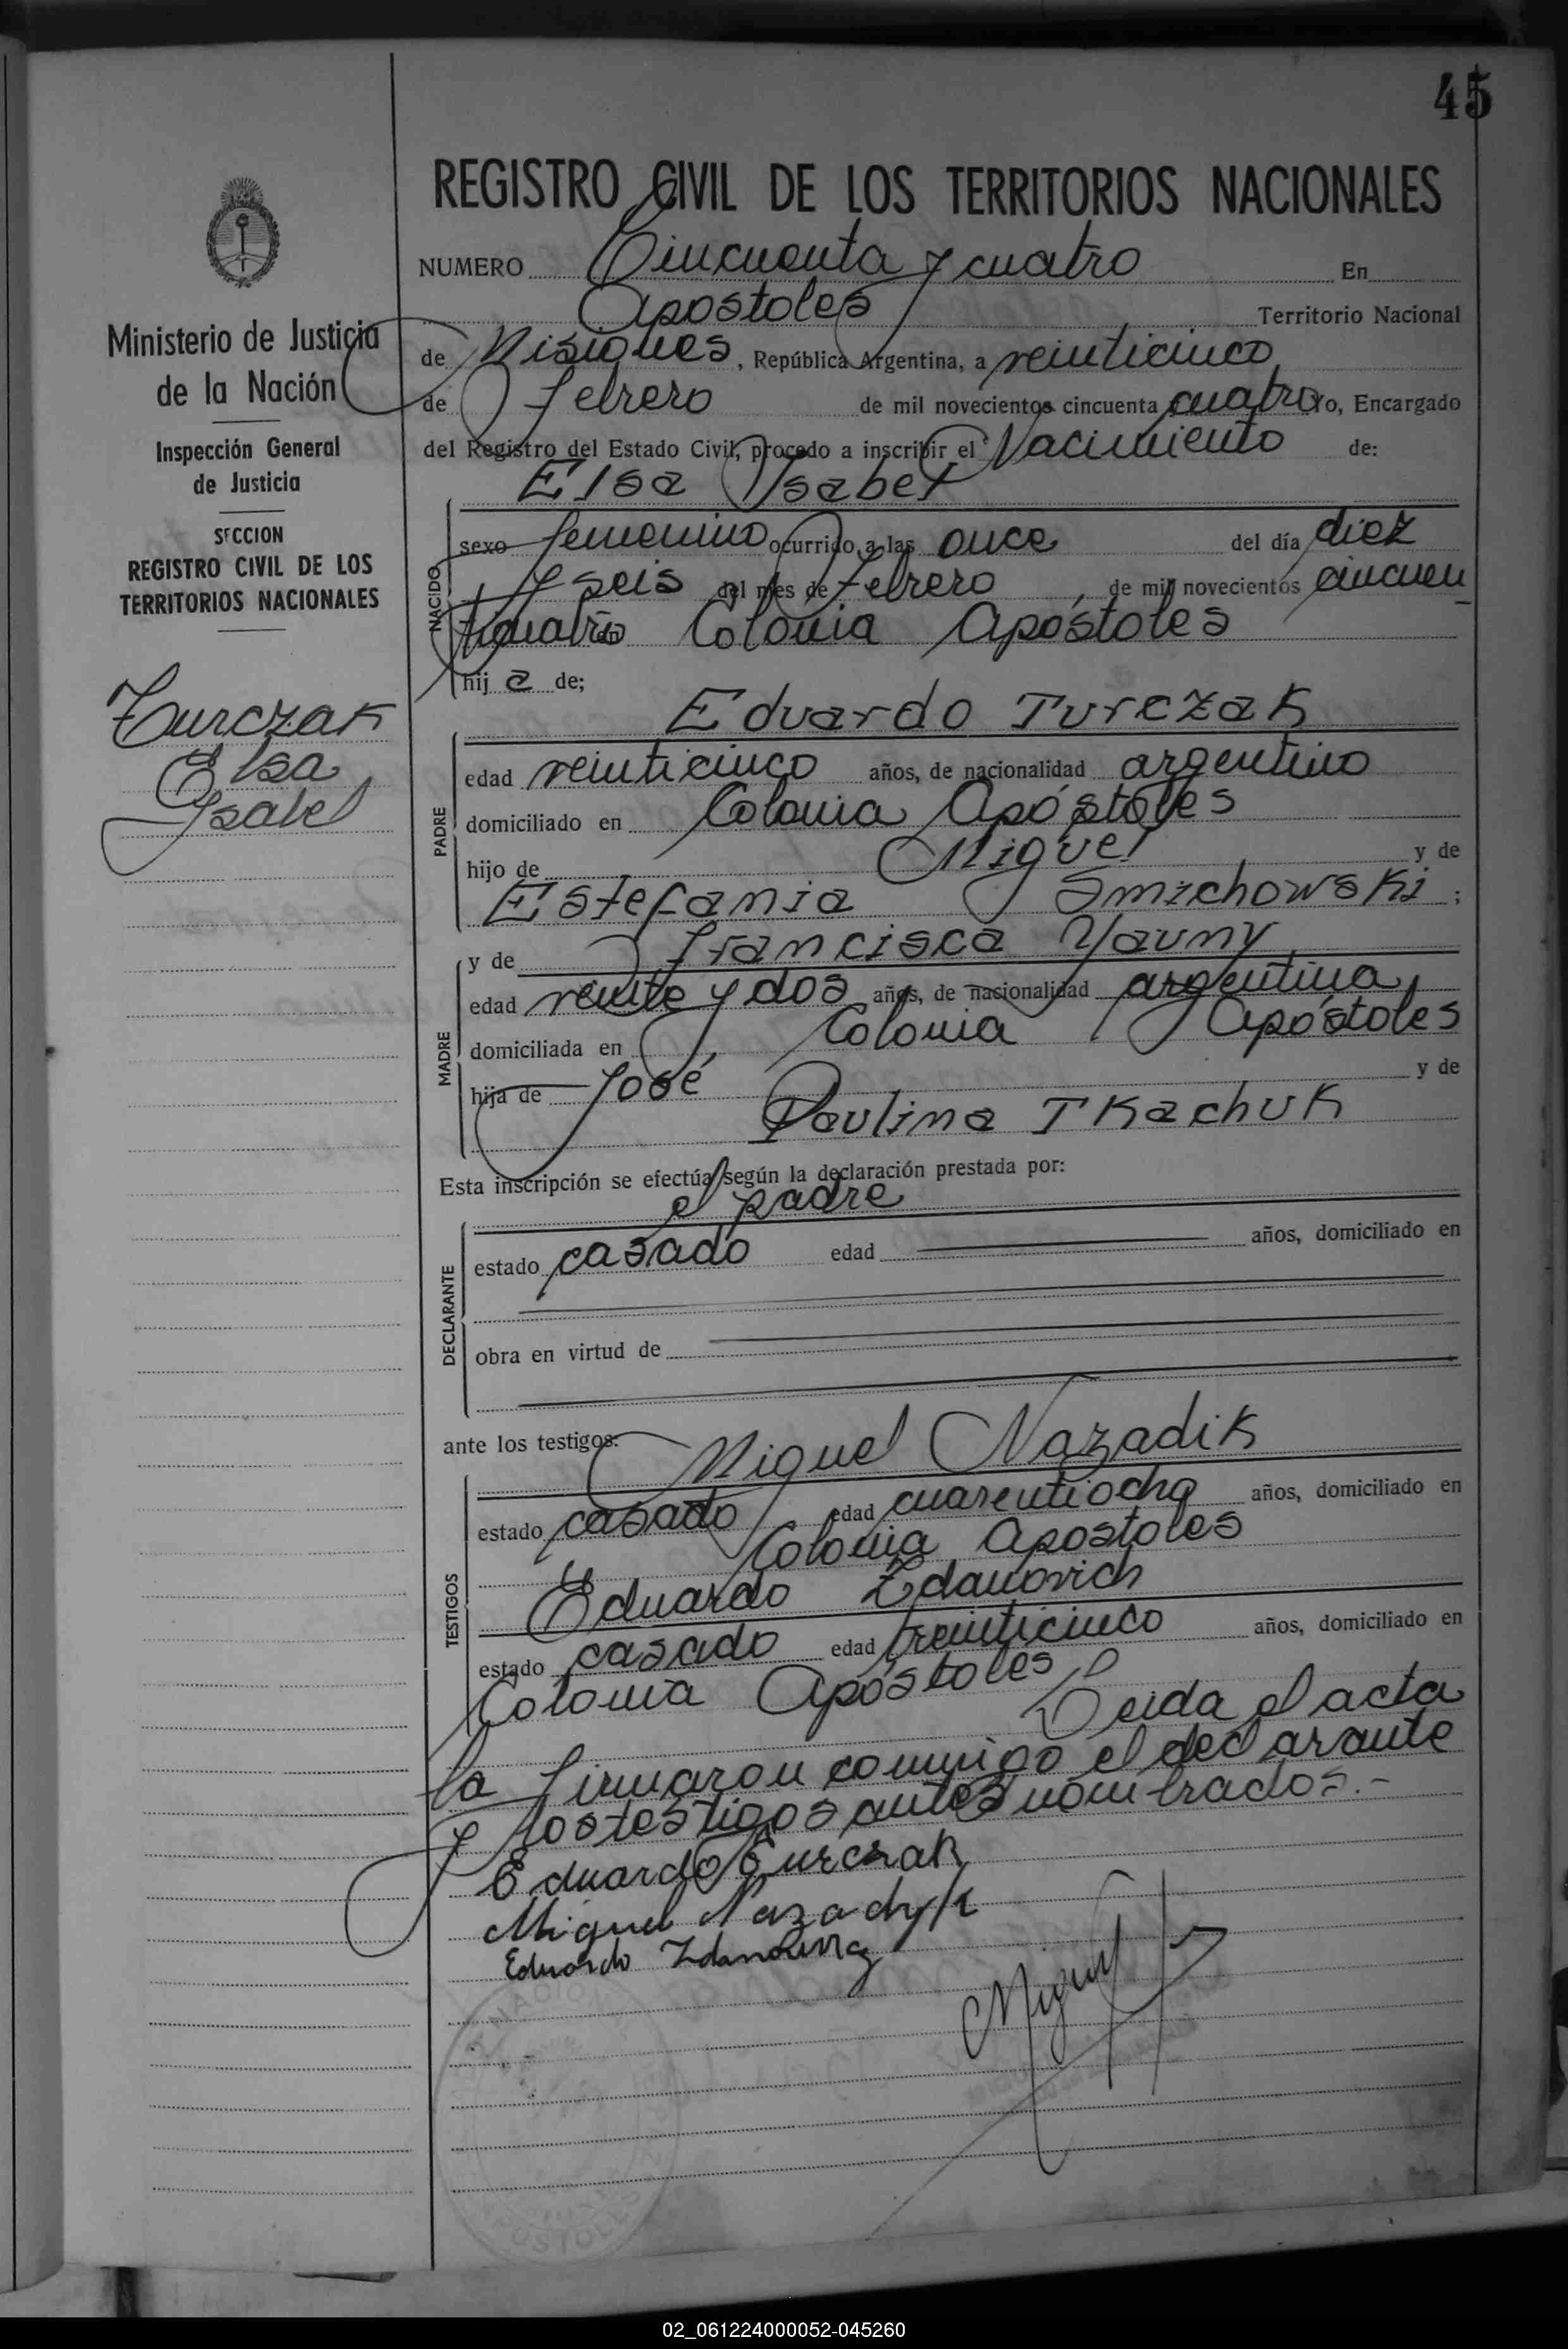 45
REGISTRO CIVIL DE LOS TERRITORIOS NACIONALES
NUMERO Cincuenta y cuatro En
Apostoles Territorio Nacional
de Misiones, República Argentina, a veinticinco
de febrero de mil novecientos cincuenta cuatro Yo, Encargado
del Registro del Estado Civil, procedo a inscribir el Nacimiento de:
Elsa Ysabel
NACIDO
sexo femenino ocurrido a las once del día diez
y seis del mes de febrero, de mil novecientos cincuen
ticuatro en Colonia Apóstoles
hij a de;
Eduardo Turczak
PADRE
edad veinticinco años, de nacionalidad argentino
domiciliado en Colonia Apóstoles
hijo de Miguel y de
Estefania Smichowski;
y de Francisca Yauny
MADRE
edad veinte y dos años, de nacionalidad argentina,
domiciliada en Colonia Apóstoles
hija de José y de
Paulina Tkachuk
Esta inscripción se efectúa según la declaración prestada por:
el padre
DECLARANTE
estado casado edad años, domiciliado en
obra en virtud de
ante los testigos: Miguel Nazadik
TESTIGOS
estado casado edad cuarentiocho años, domiciliado en
Colonia Apostoles
Eduardo Zdanovich
estado casado edad treinticinco años, domiciliado en
Colonia Apóstoles Leida el acta
la firmaron conmigo el declarante
y los testigos antes nombrados.-
Eduardo Turczak
Miguel Nazadyk
Eduardo
Miguel
Ministerio de Justicia
de la Nación
Inspección General
de Justicia
SECCION
REGISTRO CIVIL DE LOS
TERRITORIOS NACIONALES
Turczak
Elsa
Ysabel
02_061224000052-045260